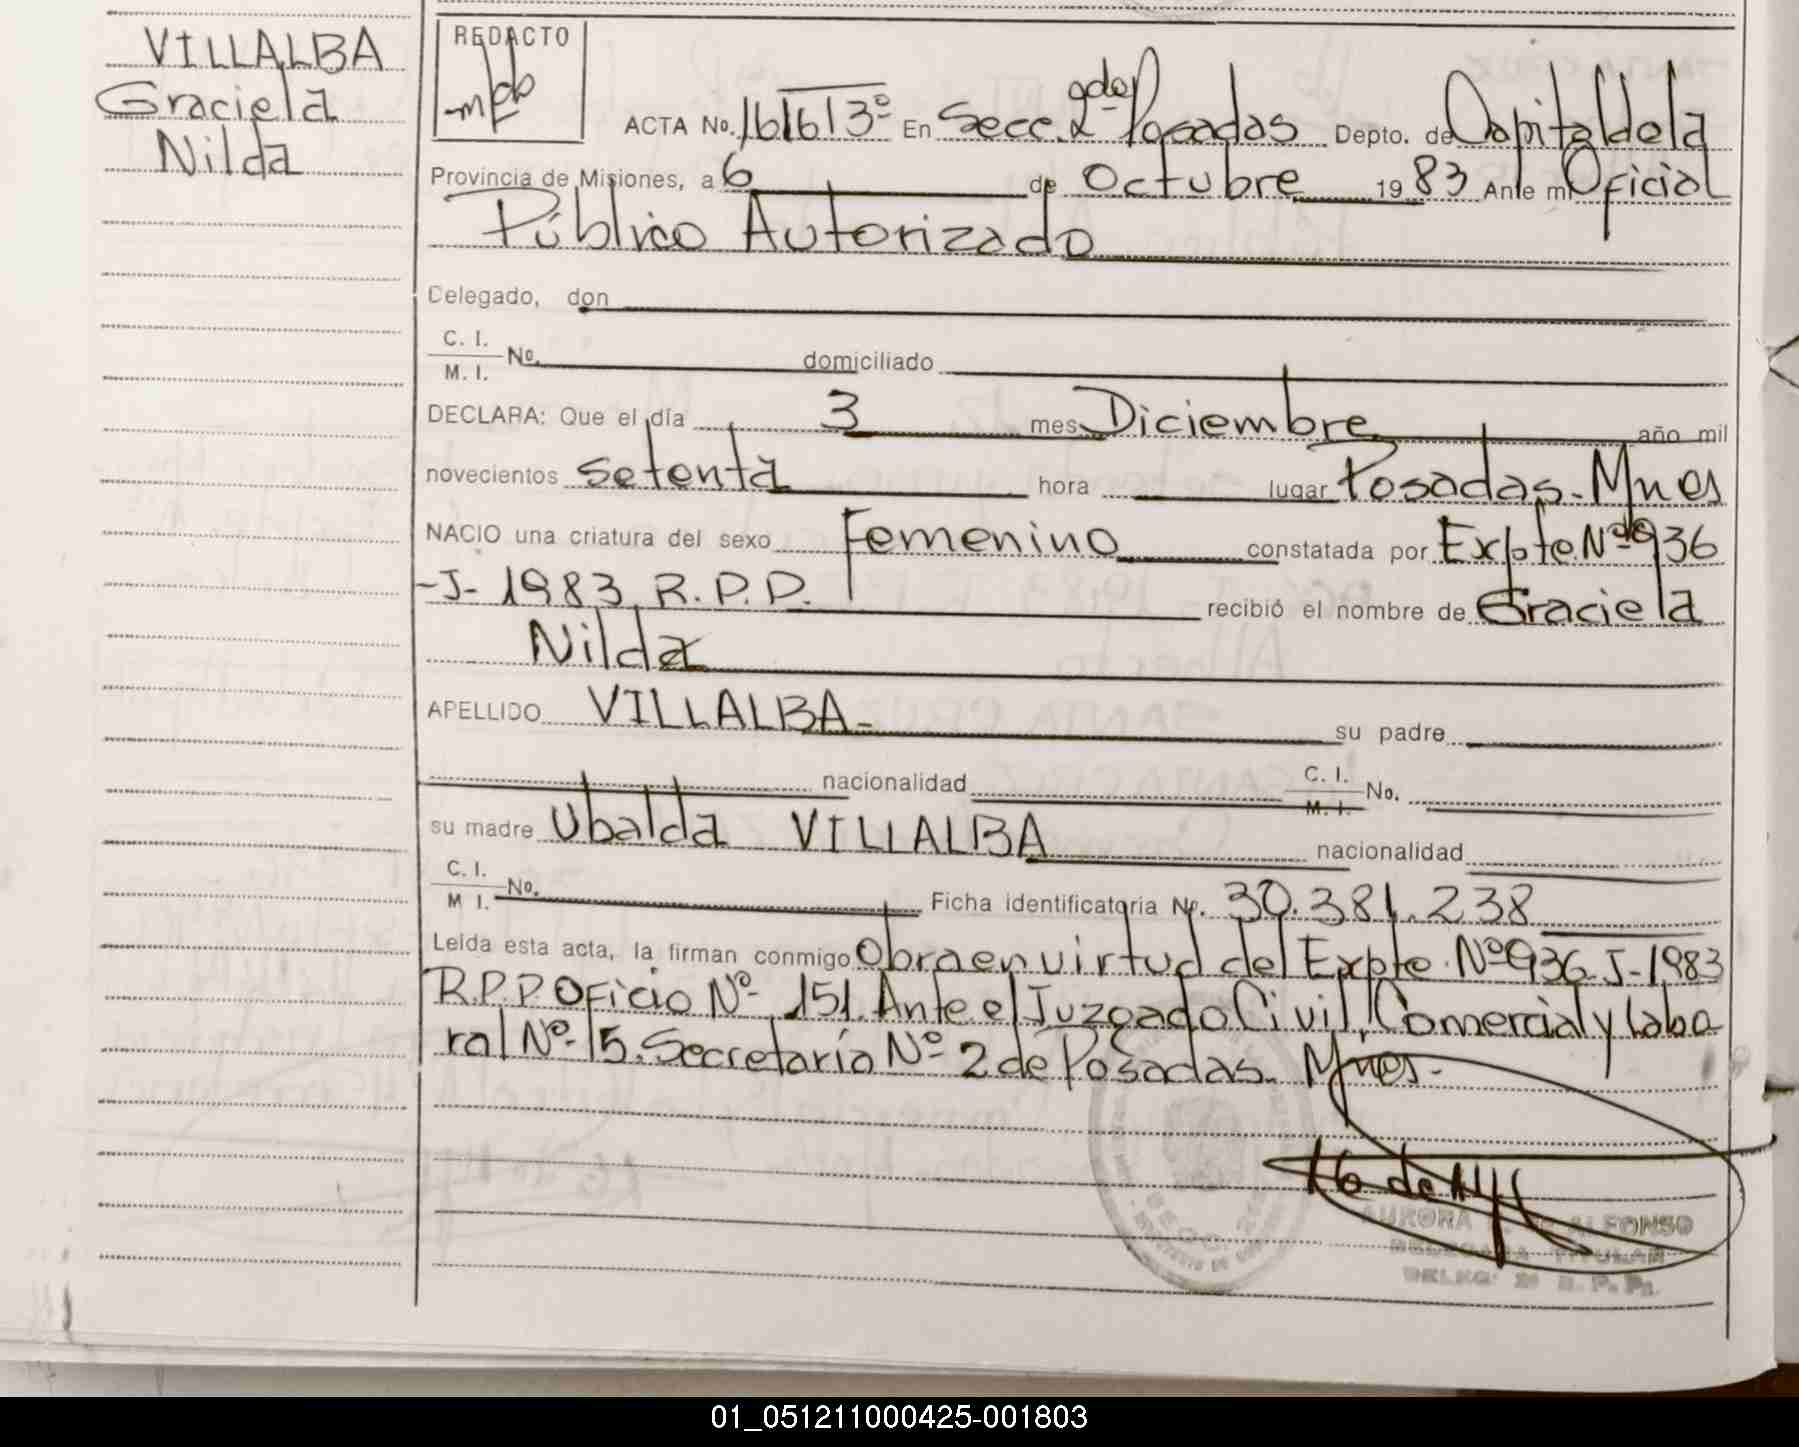 VILLALBA
Graciela
Nilda
REDACTO
ACTA No. 1616 3º En Secc. 2da Posadas Depto. de Capital de la
Provincia de Misiones, a 6 de Octubre 1983 Ante mi Oficial
Público Autorizado
Delegado, don
C. I.
M. I. No. domiciliado
DECLARA: Que el día 3 mes Diciembre año mil
novecientos setenta hora lugar Posadas - Mnes
NACIO una criatura del sexo Femenino constatada por Expte. Nº 936
-J- 1983 R.P.P. recibió el nombre de Graciela
Nilda
APELLIDO VILLALBA - su padre
nacionalidad C. I. M. I. No.
su madre Ubalda VILLALBA nacionalidad
C. I.
M I. No. Ficha identificatoria Nº. 30.381.238
Leída esta acta, la firman conmigo Obra en virtud del Expte. Nº 936-J-1983
R.P.P. Oficio Nº 151. Ante el Juzgado Civil, Comercial y Labo
ral Nº 5. Secretaría Nº 2 de Posadas - Mnes -
AURORA DE ALFONSO
DELEGADA TITULAR
DELEG. 2ª R. P. Ps.
01_051211000425-001803